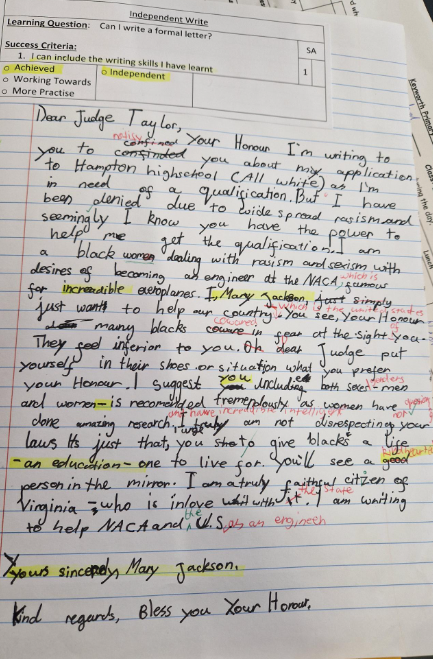 Independent Write
Learning Question: Can I write a formal letter?
Success Criteria:
SA
1. I can include the writing skills I have learnt
1
Achieved
Independent
Working Towards
More Practise
Keyworth Primary
Dear Judge Taylor,
notify
Your Honour I'm writing to
you to you about my application
to Hampton highschool (All white) as I'm
in need of a qualification. But I have
been denied due to wide spread rasism and
seemingly I know you have the power to
help me get the qualification. I am
a black women dealing with rasism and sexism with
desires of becoming an engineer at the NACA, which is famous
for incredible aeroplanes. I, Mary Jackson, just simply
just want to help our country - which is the united states
You see, Your Honour
many blacks cowered in fear at the sight of you.
They feel inferior to you. Oh dear Judge put
yourself in their shoes or situation what you prefer
your Honour. I suggest you including both sexes - men
and women - is recomended tremendously as women have
and have incredible intelligence
done amazing research. I truly am not disrespecting your
laws. Its just that, you to give blacks a life
- an education - one to live for. You'll see a good
person in the mirror. I am a truly faithful citizen of
the state
Virginia - who is inlove with it. I am writing
to help NACA and the U.S. as an engineer
Yours sincerely, Mary Jackson.
Kind regards, Bless you Your Honour.